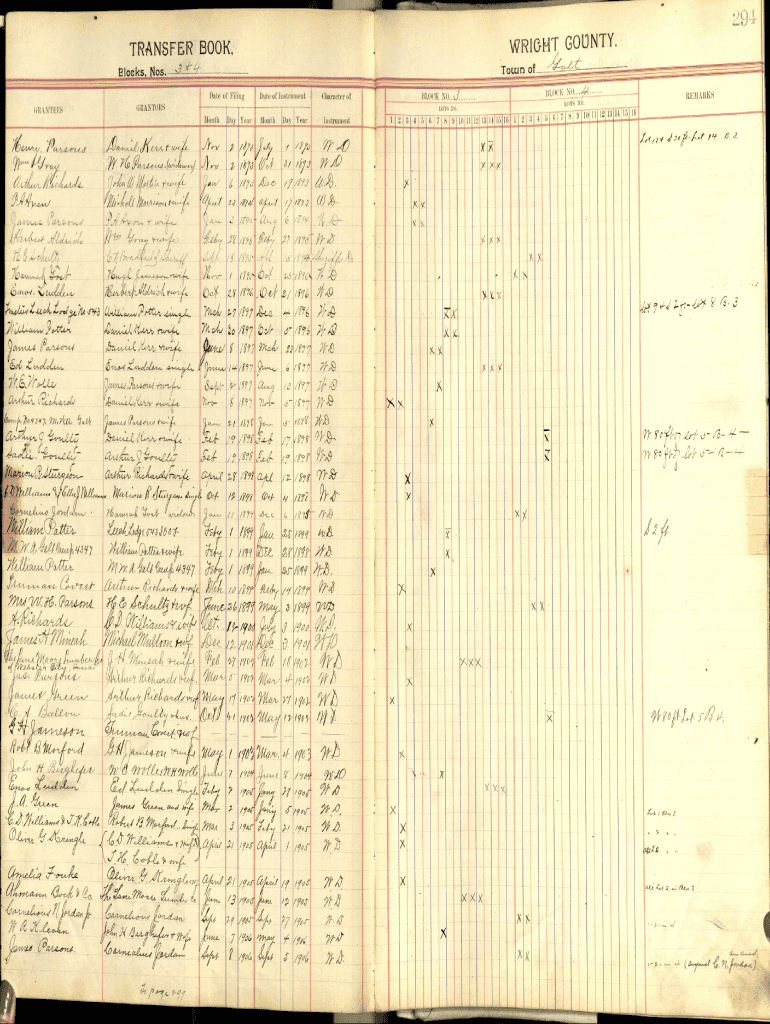 294
TRANSFER BOOK,
Blocks, Nos. 3 & 4
WRIGHT COUNTY.
Town of Galt
GRANTEES GRANTORS Date of Filing Date of Instrument Character of Instrument BLOCK NO. 3 BLOCK NO. 4 REMARKS
Month Day Year Month Day Year LOTS NO. LOTS NO.
1 2 3 4 5 6 7 8 9 10 11 12 13 14 15 16 1 2 3 4 5 6 7 8 9 10 11 12 13 14 15 16
Henry Parsons Daniel Kerr & wife Nov 2 1893 July 1 1893 W D x x
Wm Gray W H Parsons (widower) Nov 2 1893 Oct 21 1893 W D x x x
Arthur Richards John W Martin & wife Jan 6 1893 Dec 19 1893 W D. x
P A Axon Nichols Morrison & wife April 23 April 17 1893 W D x x
James Parsons P A Axon & wife Jan 3 1895 Aug 6 1894 W D x x
Herbert Aldrich Wm Gray & wife Feby 28 1895 Feby 27 1895 W D x x x
H E Schultz Sheriff Sept 18 1895 15 1894 Sheriffs D x x
Hannah Fort Hugh Jameson & wife Nov 1 1895 Oct 25 1895 W D x x
Enos Ludden Herbert Aldrich & wife Oct 28 1896 Oct 21 1896 W D x x x
Trustees Leech Lodge No 543 William Potter single Mch 27 1897 Dec 4 1896 W D x x Lot 9 & S 2 ft Lot 8 B. 3
William Potter Daniel Kerr & wife Mch 20 1897 Oct 5 1896 W D x x
James Parsons Daniel Kerr & wife June 8 1897 Mch 23 1897 W D x x
Ed Ludden Enos Ludden single June 14 1897 June 6 1897 W D x x x
W. E. Wolle James Parsons & wife Sept 2 1897 Aug 10 1897 W D x
Arthur Richards Daniel Kerr & wife Nov 8 1897 Nov 5 1897 W D x x
Camp No 4347 M W A Galt James Parsons & wife Jan 21 1898 Jan 15 1898 W D x
Arthur J Goulty Daniel Kerr & wife Feb 19 1898 Feb 17 1898 W D x W 80 ft of Lot 5 - B - 4 -
Sadie Goulty Arthur J Goulty Feb 19 1898 Feb 19 1898 W D x W 80 ft of Lot 5 - B - 4
Marion R Sturgeon Arthur Richards & wife April 28 1898 Apl 12 1898 W D x
Williams & Ella J Williams Marion R Sturgeon single Oct 12 1898 Oct 4 1898 W D x
Cornelius Jordan Hannah Fort widow Jan 11 1899 Dec 6 1895 W D x x
William Potter Leech Lodge 543 IOOF Feby 1 1899 Jan 25 1899 W D x S 2 ft
M. W. A. Galt Camp 4347 William Potter & wife Feby 1 1899 Dec 28 1898 W D x
William Potter M W A Galt Camp 4347 Feby 1 1899 Jan 25 1899 W D. x
Truman Covert Arthur Richards & wife Mch 10 1899 Feby 14 1899 W D x
Mrs W. H. Parsons H E Schultz & wf June 26 1899 May 3 1899 W D x x
A. Richards C. D. Williams & wife Oct. 12 1900 July 3 1900 W D. x
James H Mineah Michael Muldoon & wf Dec 12 1901 Dec 3 1901 W D
The Lane Moore Lumber Co J. H Mineah & wife Feb 27 1902 Feb 18 1902 W D x x x
of Webster City Iowa
Jas. Parsons Arthur Richards & wf. Mar 5 1902 Mar 4 1902 W D. x
James Green Arthur Richards & wf May 17 1902 Mar 27 1902 W D x
C A Ballou Sadie Goulty & hus. Oct 31 1902 May 12 1902 W D. x W 80 ft Lot 5 B 4.
G. H Jameson Truman Covert & wf
Robt B Morford G. H Jameson & wife May 1 1903 Mar. 4 1903 W D x
John H Berghefer W E Wolle June 7 1904 June 8 1904 W D x
Enos Ludden Ed Ludden Single Feby 2 1905 Jany 28 1905 W D x x x
J. A. Green James Green and wife Mar 2 1905 Jany 5 1905 W D. x
C. D. Williams & T. H. Coble Robert B Morford, Single Mar 3 1905 Feby 21 1905 W D. x
Oliver G Kringle C. D Williams & wife April 21 1905 April 1 1905 W D x
T. H. Coble & wife
Amelia Fouke Oliver G. Kringle April 21 1905 April 19 1905 W D x
Ahmann Bock & Co. The Lane Moore Lumber Co June 13 1905 June 12 1905 W D x x x
Cornelious N Jordan Jr Cornelious Jordan Sept 29 1905 Sept 27 1905 W. D x x
W. R. Kleven John H Berghefer & Wife June 7 1906 May 4 1906 W D x
James Parsons. Cornelius Jordan Sept 8 1906 Sept 5 1906 W D. x x (C. N. Jordan)
To page 299